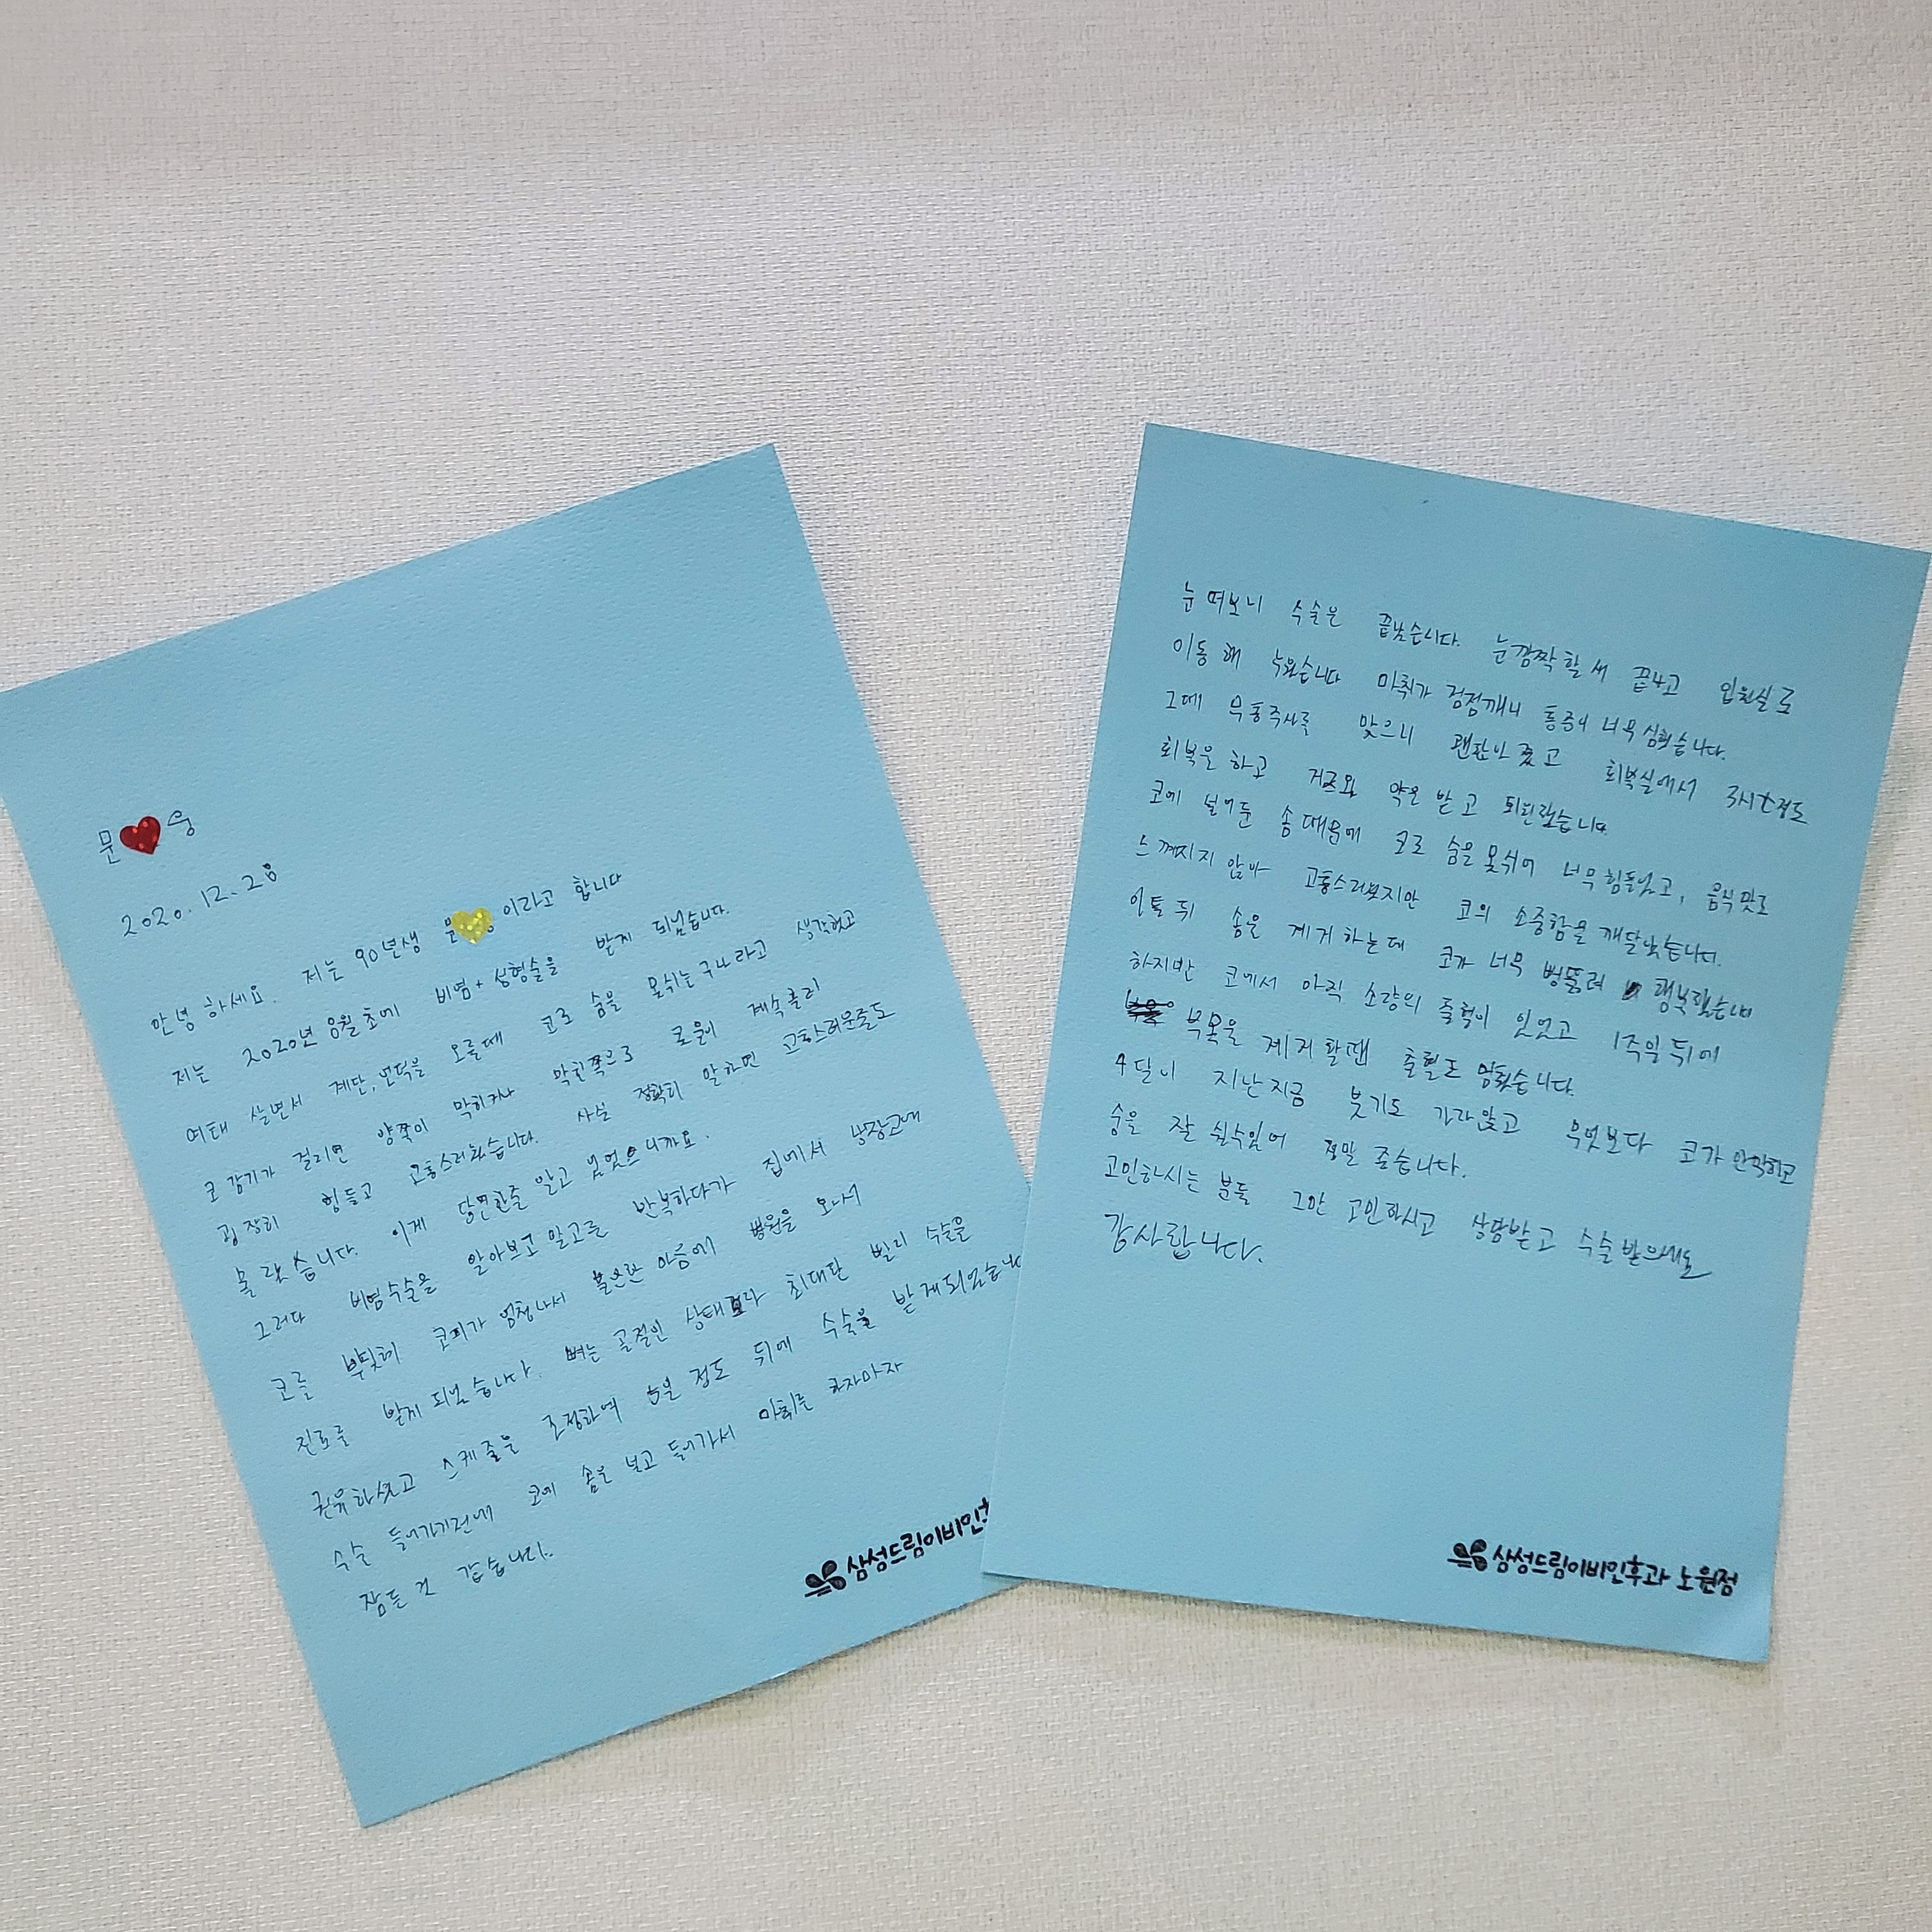 문 웅
2020. 12. 28
안녕하세요. 저는 90년생 문 이라고 합니다
저는 2020년 8월초에 비염+성형술을 받게 되었습니다.
여태 살면서 계단, 언덕을 오를때 코로 숨을 못쉬는구나라고 생각했고
코감기가 걸리면 양쪽이 막히거나 막힌쪽으로 콧물이 계속흘러
굉장히 힘들고 고통스러웠습니다. 사실 정확히 말하면 고통스러운줄도
몰랐습니다. 이게 당연한줄 알고 있었으니까요.
그러다 비염수술을 알아보고 말고를 반복하다가 집에서 냉장고에
코를 부딪혀 코피가 엄청나서 불안한 마음에 병원을 오셔서
진료를 받게 되었습니다. 뼈는 골절인 상태라 최대한 빨리 수술을
권유하셨고 스케줄을 조정하여 5일 정도 뒤에 수술을 받게되었습니다
수술 들어가기전에 코에 솜을 넣고 들어가서 마취를 하자마자
잠든 것 같습니다.
삼성드림이비인
눈떠보니 수술은 끝났습니다. 눈깜짝할 새 끝나고 입원실로
이동해 누웠습니다 마취가 점점깨니 통증이 너무 심했습니다.
그때 무통주사를 맞으니 괜찮아졌고 회복실에서 3시간정도
회복을 하고 거즈와 약을 받고 퇴원했습니다
코에 넣어둔 솜 때문에 코로 숨을 못쉬어 너무 힘들었고, 음식맛도
느껴지지 않아 고통스러웠지만 코의 소중함을 깨달았습니다.
이틀 뒤 솜을 제거하는데 코가 너무 뻥뚫려 행복했습니다
하지만 코에서 아직 소량의 출혈이 있었고 1주일 뒤에
부목을 제거할땐 출혈도 멈췄습니다.
4달이 지난지금 붓기도 가라앉고 무엇보다 코가 안막히고
숨을 잘 쉴수있어 정말 좋습니다.
고민하시는 분들 그만 고민하시고 상담받고 수술받으세요
감사합니다.
삼성드림이비인후과 노원점